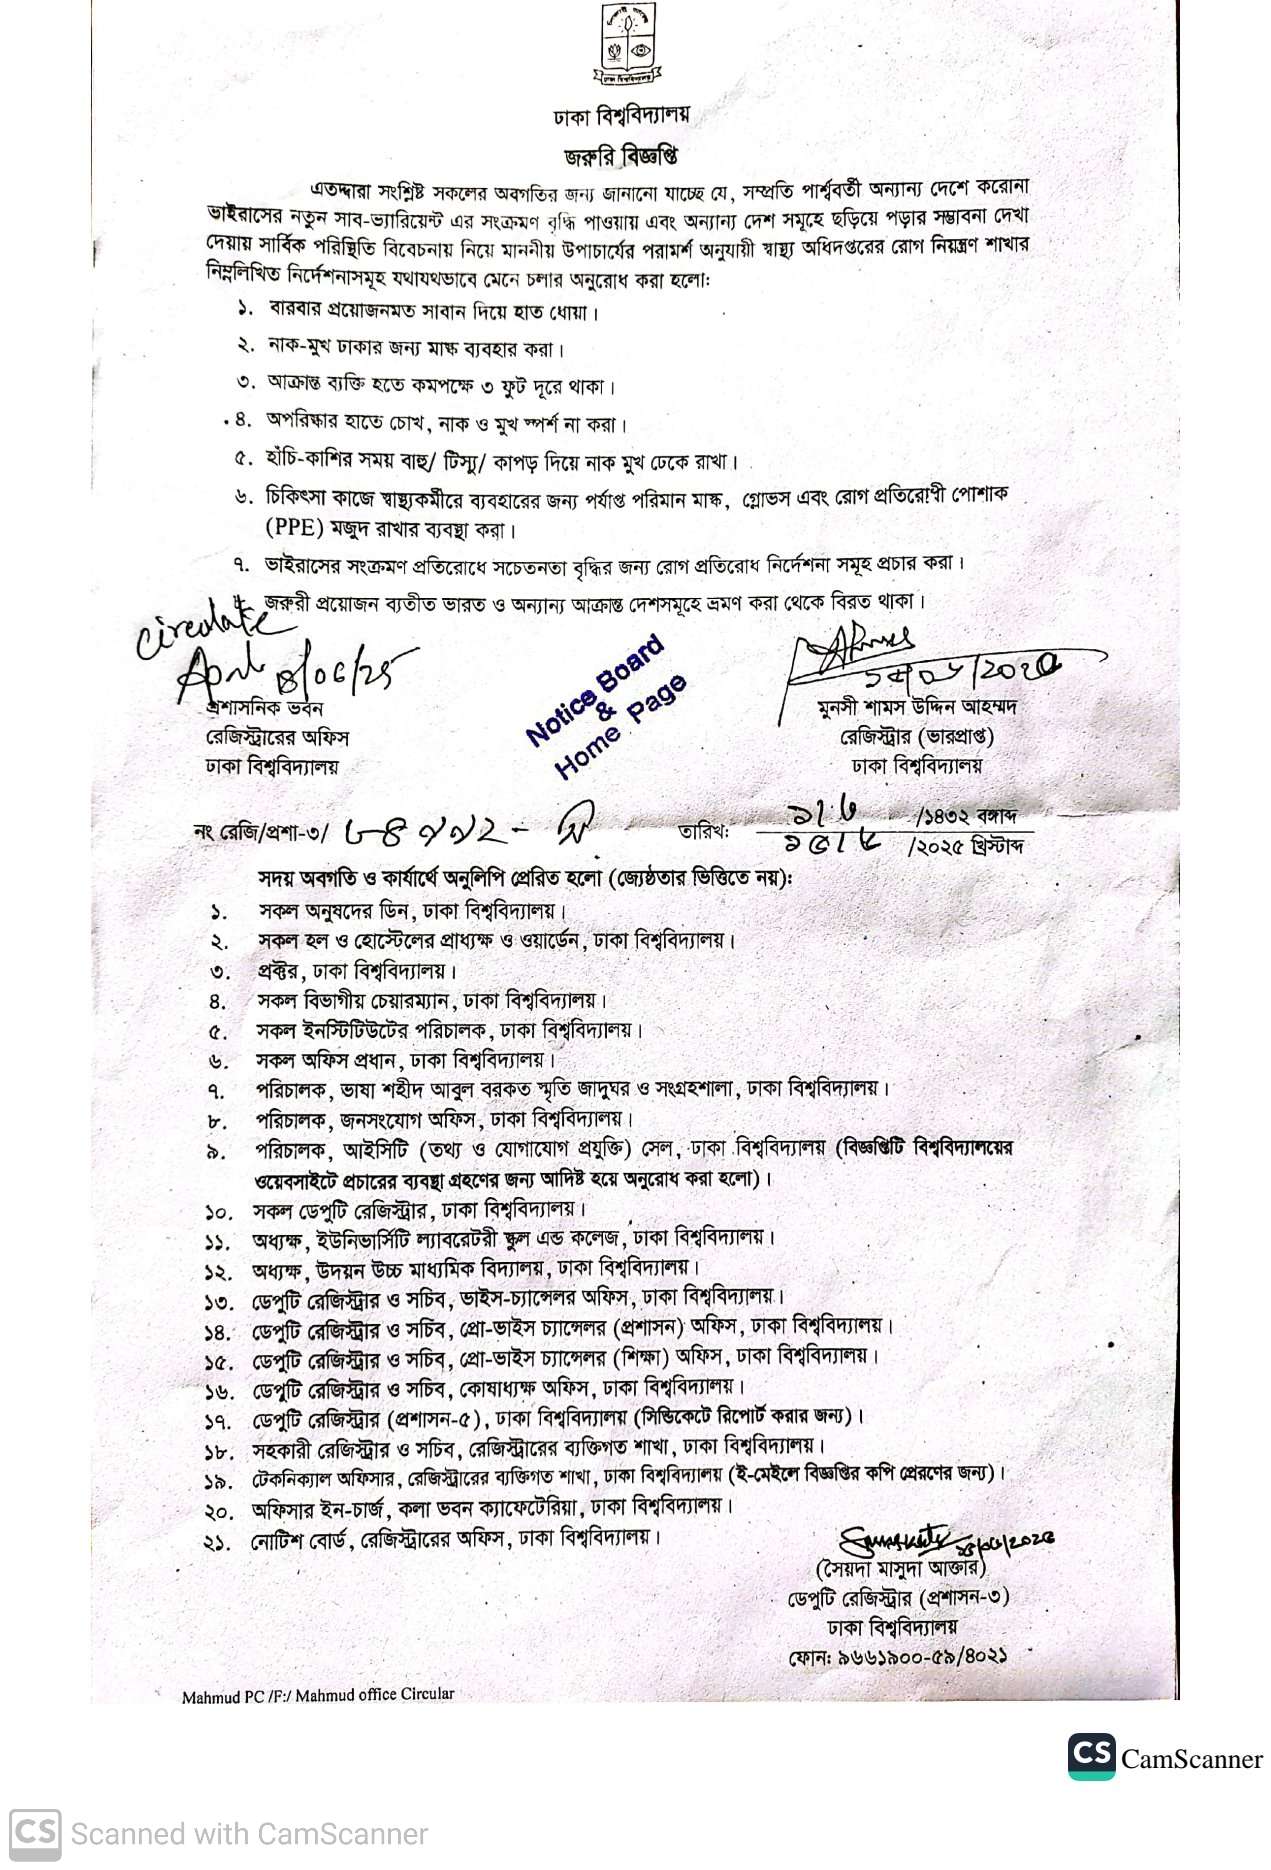 ঢাকা বিশ্ববিদ্যালয়
ঢাকা বিশ্ববিদ্যালয়
জরুরি বিজ্ঞপ্তি
এতদ্দারা সংশ্লিষ্ট সকলের অবগতির জন্য জানানো যাচ্ছে যে, সম্প্রতি পার্শ্ববর্তী অন্যান্য দেশে করোনা
ভাইরাসের নতুন সাব-ভ্যারিয়েন্ট এর সংক্রমণ বৃদ্ধি পাওয়ায় এবং অন্যান্য দেশ সমূহে ছড়িয়ে পড়ার সম্ভাবনা দেখা
দেয়ায় সার্বিক পরিস্থিতি বিবেচনায় নিয়ে মাননীয় উপাচার্যের পরামর্শ অনুযায়ী স্বাস্থ্য অধিদপ্তরের রোগ নিয়ন্ত্রণ শাখার
নিম্নলিখিত নির্দেশনাসমূহ যথাযথভাবে মেনে চলার অনুরোধ করা হলো:
১. বারবার প্রয়োজনমত সাবান দিয়ে হাত ধোয়া।
২. নাক-মুখ ঢাকার জন্য মাস্ক ব্যবহার করা।
৩. আক্রান্ত ব্যক্তি হতে কমপক্ষে ৩ ফুট দূরে থাকা।
৪. অপরিষ্কার হাতে চোখ, নাক ও মুখ স্পর্শ না করা।
৫. হাঁচি-কাশির সময় বাহু/ টিস্যু/ কাপড় দিয়ে নাক মুখ ঢেকে রাখা।
৬. চিকিৎসা কাজে স্বাস্থ্যকর্মীরে ব্যবহারের জন্য পর্যাপ্ত পরিমান মাস্ক, গ্লোভস এবং রোগ প্রতিরোধী পোশাক
(PPE) মজুদ রাখার ব্যবস্থা করা।
৭. ভাইরাসের সংক্রমণ প্রতিরোধে সচেতনতা বৃদ্ধির জন্য রোগ প্রতিরোধ নির্দেশনা সমূহ প্রচার করা।
জরুরী প্রয়োজন ব্যতীত ভারত ও অন্যান্য আক্রান্ত দেশসমূহে ভ্রমণ করা থেকে বিরত থাকা।
circulate
/06/25
প্রশাসনিক ভবন
রেজিস্ট্রারের অফিস
ঢাকা বিশ্ববিদ্যালয়
Notice Board
&
Home Page
মুনসী শামস উদ্দিন আহম্মদ
রেজিস্ট্রার (ভারপ্রাপ্ত)
ঢাকা বিশ্ববিদ্যালয়
নং রেজি/প্রশা-৩/
তারিখঃ /১৪৩২ বঙ্গাব্দ
/২০২৫ খ্রিস্টাব্দ
সদয় অবগতি ও কার্যার্থে অনুলিপি প্রেরিত হলো (জ্যেষ্ঠতার ভিত্তিতে নয়):
১. সকল অনুষদের ডিন, ঢাকা বিশ্ববিদ্যালয়।
২. সকল হল ও হোস্টেলের প্রাধ্যক্ষ ও ওয়ার্ডেন, ঢাকা বিশ্ববিদ্যালয়।
৩. প্রক্টর, ঢাকা বিশ্ববিদ্যালয়।
৪. সকল বিভাগীয় চেয়ারম্যান, ঢাকা বিশ্ববিদ্যালয়।
৫. সকল ইনস্টিটিউটের পরিচালক, ঢাকা বিশ্ববিদ্যালয়।
৬. সকল অফিস প্রধান, ঢাকা বিশ্ববিদ্যালয়।
৭. পরিচালক, ভাষা শহীদ আবুল বরকত স্মৃতি জাদুঘর ও সংগ্রহশালা, ঢাকা বিশ্ববিদ্যালয়।
৮. পরিচালক, জনসংযোগ অফিস, ঢাকা বিশ্ববিদ্যালয়।
৯. পরিচালক, আইসিটি (তথ্য ও যোগাযোগ প্রযুক্তি) সেল, ঢাকা বিশ্ববিদ্যালয় (বিজ্ঞপ্তিটি বিশ্ববিদ্যালয়ের
ওয়েবসাইটে প্রচারের ব্যবস্থা গ্রহণের জন্য আদিষ্ট হয়ে অনুরোধ করা হলো)।
১০. সকল ডেপুটি রেজিস্ট্রার, ঢাকা বিশ্ববিদ্যালয়।
১১. অধ্যক্ষ, ইউনিভার্সিটি ল্যাবরেটরী স্কুল এন্ড কলেজ, ঢাকা বিশ্ববিদ্যালয়।
১২. অধ্যক্ষ, উদয়ন উচ্চ মাধ্যমিক বিদ্যালয়, ঢাকা বিশ্ববিদ্যালয়।
১৩. ডেপুটি রেজিস্ট্রার ও সচিব, ভাইস-চ্যান্সেলর অফিস, ঢাকা বিশ্ববিদ্যালয়।
১৪. ডেপুটি রেজিস্ট্রার ও সচিব, প্রো-ভাইস চ্যান্সেলর (প্রশাসন) অফিস, ঢাকা বিশ্ববিদ্যালয়।
১৫. ডেপুটি রেজিস্ট্রার ও সচিব, প্রো-ভাইস চ্যান্সেলর (শিক্ষা) অফিস, ঢাকা বিশ্ববিদ্যালয়।
১৬. ডেপুটি রেজিস্ট্রার ও সচিব, কোষাধ্যক্ষ অফিস, ঢাকা বিশ্ববিদ্যালয়।
১৭. ডেপুটি রেজিস্ট্রার (প্রশাসন-৫), ঢাকা বিশ্ববিদ্যালয় (সিন্ডিকেটে রিপোর্ট করার জন্য)।
১৮. সহকারী রেজিস্ট্রার ও সচিব, রেজিস্ট্রারের ব্যক্তিগত শাখা, ঢাকা বিশ্ববিদ্যালয়।
১৯. টেকনিক্যাল অফিসার, রেজিস্ট্রারের ব্যক্তিগত শাখা, ঢাকা বিশ্ববিদ্যালয় (ই-মেইলে বিজ্ঞপ্তির কপি প্রেরণের জন্য)।
২০. অফিসার ইন-চার্জ, কলা ভবন ক্যাফেটেরিয়া, ঢাকা বিশ্ববিদ্যালয়।
২১. নোটিশ বোর্ড, রেজিস্ট্রারের অফিস, ঢাকা বিশ্ববিদ্যালয়।
(সৈয়দা মাসুদা আক্তার)
ডেপুটি রেজিস্ট্রার (প্রশাসন-৩)
ঢাকা বিশ্ববিদ্যালয়
ফোন: ৯৬৬১৯০০-৫৯/৪০২১
Mahmud PC /F:/ Mahmud office Circular
CS CamScanner
CS Scanned with CamScanner